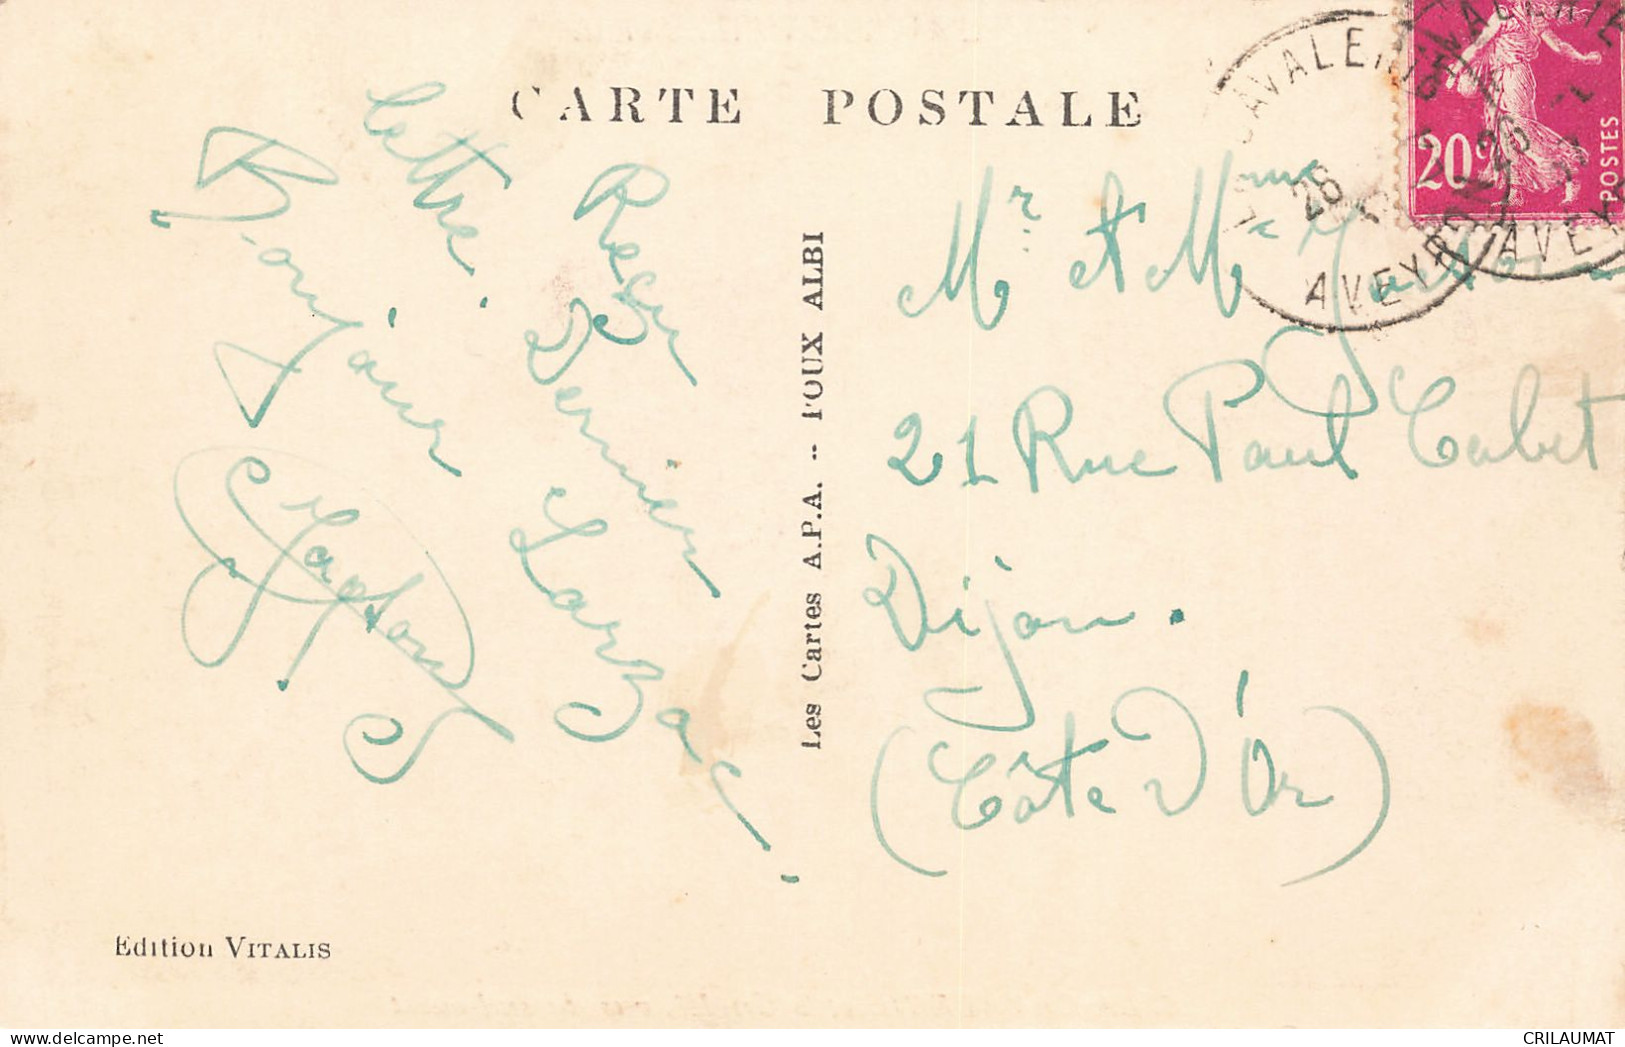 CARTE POSTALE
Reçu
Dernier
Larzac.
lettre.
Bonjour
Gaston
Les Cartes A.P.A. -- POUX ALBI
Edition VITALIS
Mr et Mme
21 Rue Paul Cabet
Dijon.
(Côte D'Or)
20c
POSTES
LA CAVALERIE
26
AVEYRON
26
AVEYRON
CRILAUMAT